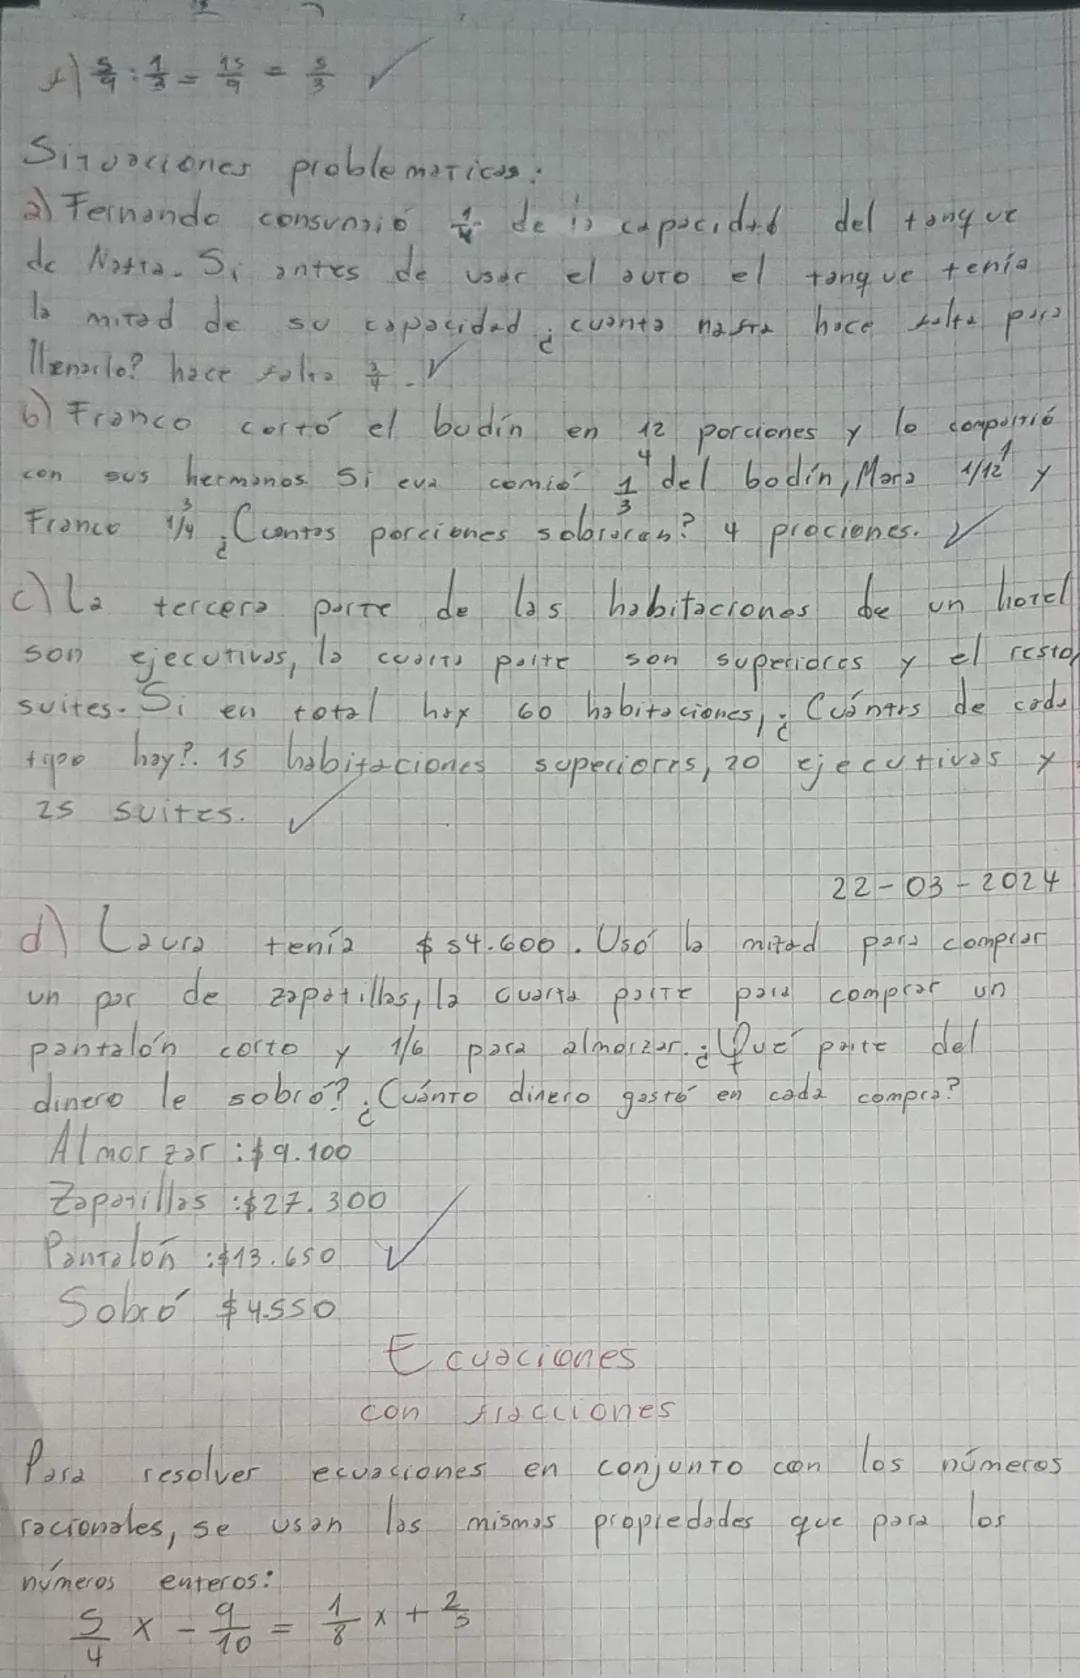 f) 5/9 : 1/3 = 15/9 = 5/3 ✓
Situaciones problematicas:
a) Fernando consumió 1/4 de la capacidad del tanque
de Nafta. Si antes de usar el auto el tanque tenía
la mitad de su capacidad ¿cuanta nafta hace falta para
llenarlo? hace falta 3/4. ✓
b) Franco cortó el budín en 12 porciones y lo compartió
con sus hermanos Si eva comió 1/3 4 del bodín, Mara 1/12 1 y
Franco 1/4 3 ¿Cuantas porciones sobraran? 4 prociones. ✓
c) La tercera parte de las habitaciones de un hotel
son ejecutivas, la cuarta parte son superiores y el resto,
suites. Si en total hay 60 habitaciones, ¿Cuántas de cada
tipo hay?. 15 habitaciones superiores, 20 ejecutivas y
25 suites. ✓
22-03-2024
d) Laura tenía $54.600. Usó la mitad para comprar
un par de zapatillas, la cuarta parte para comprar un
pantalón corto y 1/6 para almorzar. ¿Qué parte del
dinero le sobró? ¿Cuánto dinero gastó en cada compra?
Almorzar: $9.100
Zapatillas: $27.300
Pantalón: $13.650 ✓
Sobró $4.550
Ecuaciones
con fracciones
Para resolver ecuaciones en conjunto con los números
racionales, se usan las mismas propiedades que para los
números enteros:
5/4 x - 9/10 = 1/8 x + 2/5